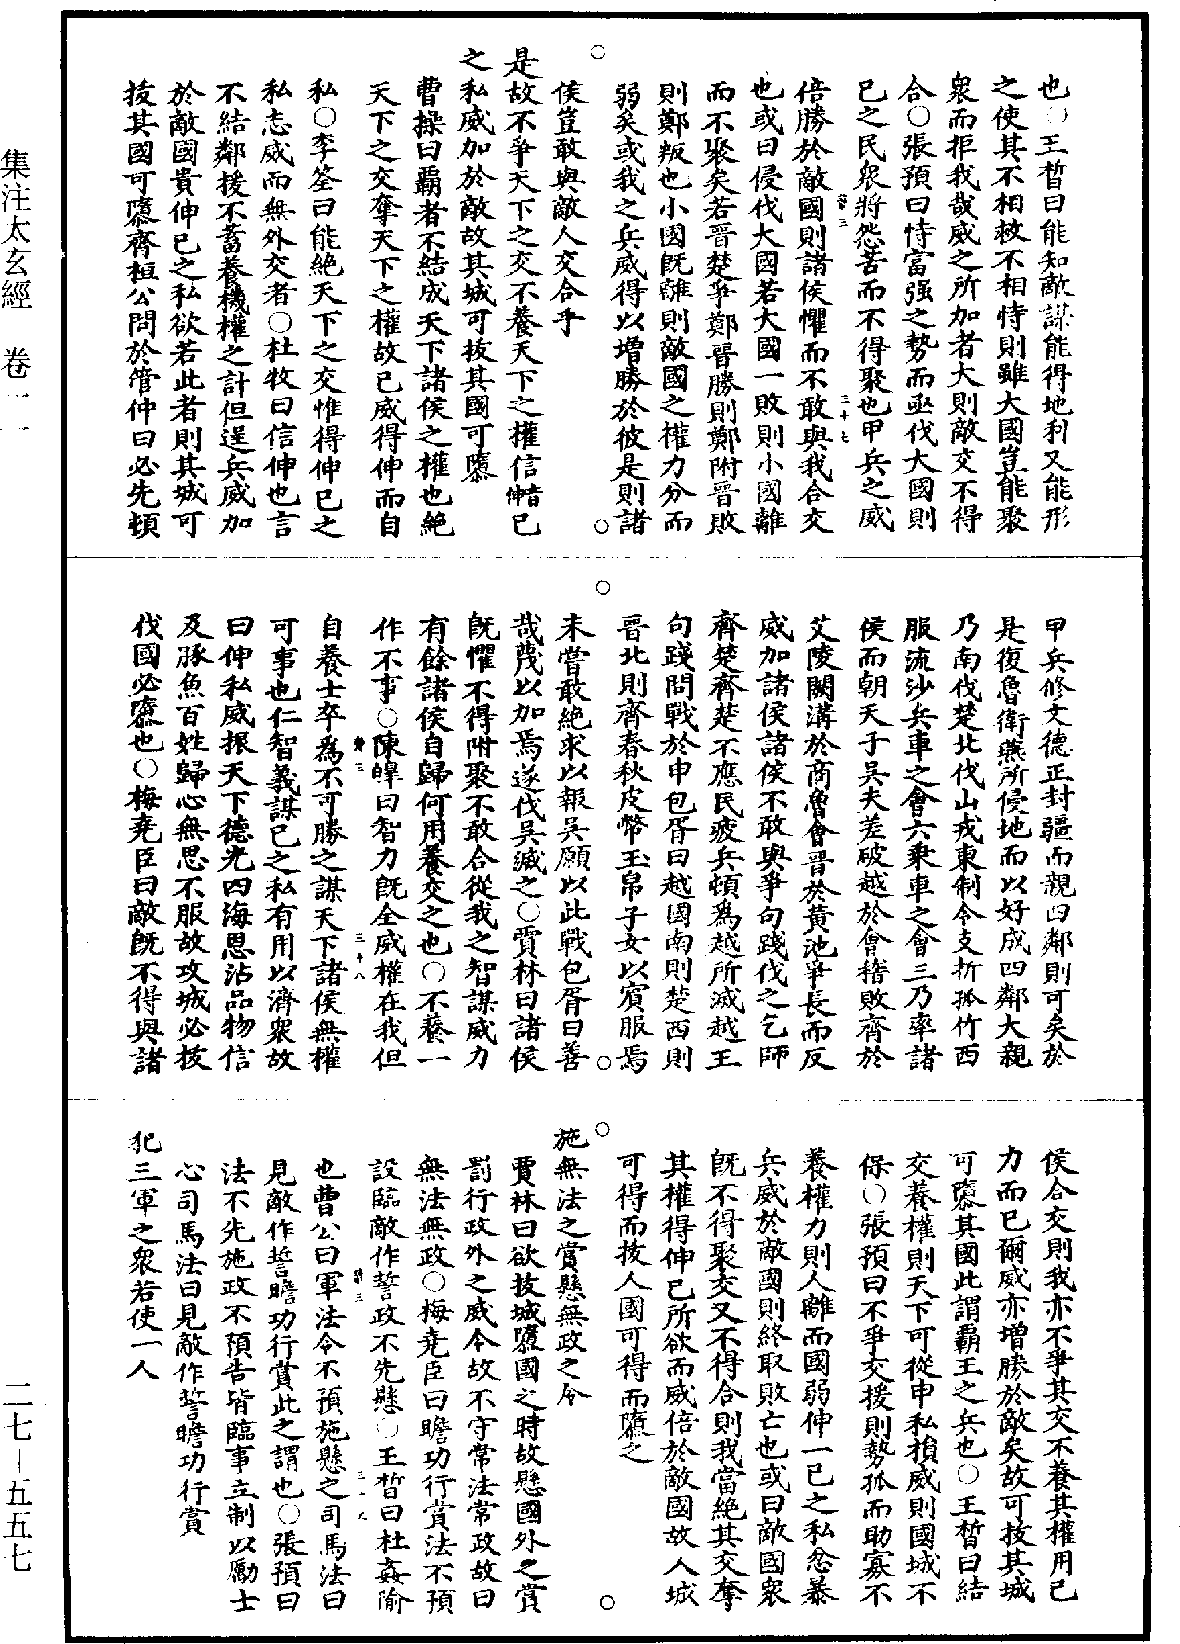 也○王晳曰能知敵謀能得地利又能形
之使其不相救不相恃則雖大國豈能聚
衆而拒我哉威之所加者大則敵交不得
合○張預曰恃富强之勢而亟伐大國則
己之民衆將怨苦而不得聚也甲兵之威
倍勝於敵國則諸侯懼而不敢與我合交
也或曰侵伐大國若大國一敗則小國離
而不聚矣若晉楚爭鄭晉勝則鄭附晉敗
則鄭叛也小國旣離則敵國之權力分而
弱矣或我之兵威得以增勝於彼是則諸
侯豈敢與敵人交合乎
是故不爭天下之交不養天下之權信音伸己
之私威加於敵故其城可拔其國可隳
曹操曰覇者不結成天下諸侯之權也絶
天下之交奪天下之權故己威得伸而自
私○李筌曰能絶天下之交惟得伸己之
私志威而無外交者○杜牧曰信伸也言
不結鄰援不蓄養機權之計但逞兵威加
於敵國貴伸己之私欲若此者則其城可
拔其國可隳齊桓公問於管仲曰必先頓
甲兵修文德正封疆而親四鄰則可矣於
是復魯衛燕所侵地而以好成四鄰大親
乃南伐楚北伐山戎東制令支折孤竹西
服流沙兵車之會六乘車之會三乃率諸
侯而朝天子吳夫差破越於會稽敗齊於
艾陵闕溝於商魯會晉於黃池爭長而反
威加諸侯諸侯不敢與爭句踐伐之乞師
齊楚齊楚不應民疲兵頓爲越所滅越王
句踐問戰於申包胥曰越國南則楚西則
晉北則齊春秋皮幣玉帛子女以賓服焉
未嘗敢絶求以報吳願以此戰包胥曰善
哉蔑以加焉遂伐吳滅之○賈林曰諸侯
旣懼不得附聚不敢合從我之智謀威力
有餘諸侯自歸何用養交之也○不養一
作不事○陳皥曰智力旣全威權在我但
自養士卒爲不可勝之謀天下諸侯無權
可事也仁智義謀己之私有用以濟衆故
曰伸私威振天下德光四海恩沾品物信
及豚魚百姓歸心無思不服故攻城必拔
伐國必隳也○梅堯臣曰敵旣不得與諸
侯合交則我亦不爭其交不養其權用己
力而已爾威亦增勝於敵矣故可拔其城
可隳其國此謂霸王之兵也○王晳曰結
交養權則天下可從申私損威則國城不
保○張預曰不爭交援則勢孤而助寡不
養權力則人離而國弱伸一己之私忿暴
兵威於敵國則終取敗亡也或曰敵國衆
旣不得聚交又不得合則我當絶其交奪
其權得伸己所欲而威倍於敵國故人城
可得而拔人國可得而隳之
施無法之賞懸無政之令
賈林曰欲拔城隳國之時故懸國外之賞
罰行政外之威令故不守常法常政故曰
無法無政○梅堯臣曰瞻功行賞法不預
設臨敵作誓政不先懸○王晳曰杜姦隃
也曹公曰軍法令不預施懸之司馬法曰
見敵作誓瞻功行賞此之謂也○張預曰
法不先施政不預告皆臨事立制以勵士
心司馬法曰見敵作誓瞻功行賞
犯三軍之衆若使一人
集注太玄經 卷一一
二七—五五七